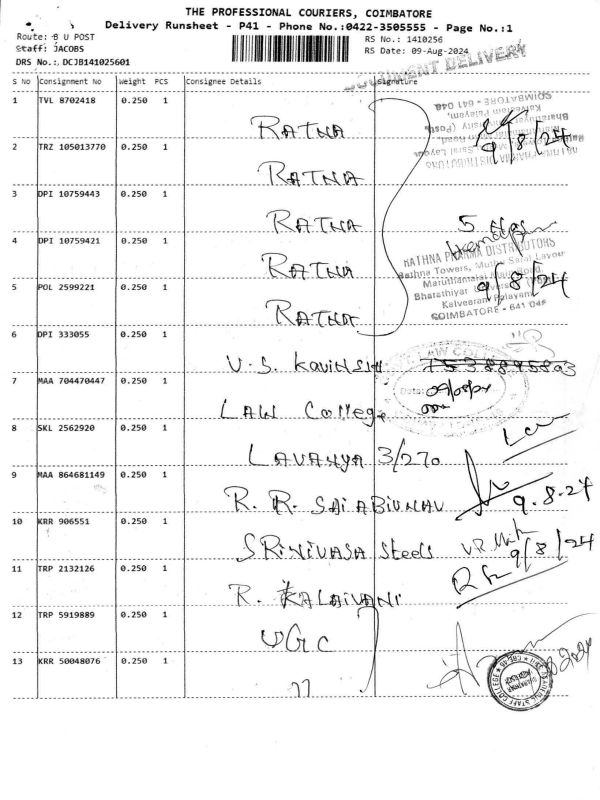 THE PROFESSIONAL COURIERS, COIMBATORE
Delivery Runsheet - P41 - Phone No.:0422-3505555 - Page No.:1
Route: B U POST
Staff: JACOBS
DRS No.: DCJB141025601
RS No.: 1410256
RS Date: 09-Aug-2024
DELIVERY
S No Consignment No Weight PCS Consignee Details Signature
1 TVL 8702418 0.250 1 RATNA
9/8/24
2 TRZ 105013770 0.250 1 RATNA
3 DPI 10759443 0.250 1 RATNA
5
4 DPI 10759421 0.250 1 RATNA
RATHNA PHARMA DISTRIBUTORS
Rathna Towers, Muthu Saral Layout
Maruthamalai Main Road,
Bharathiyar University (Post)
Kalveeran Palayam,
COIMBATORE - 641 046
9/8/24
5 POL 2599221 0.250 1 RATNA
6 DPI 333055 0.250 1 V.S. KAVINSH
7 MAA 704470447 0.250 1 LAW College
LAW COLLEGE
8 SKL 2562920 0.250 1 LAVANYA 3/270
9 MAA 864681149 0.250 1 R. R. SAI ABIUNAV
9.8.24
10 KRR 906551 0.250 1 SRINIVASA Steels
9/8/24
11 TRP 2132126 0.250 1 R. KALAIVANI
12 TRP 5919889 0.250 1 UGC
13 KRR 50048076 0.250 1 ''